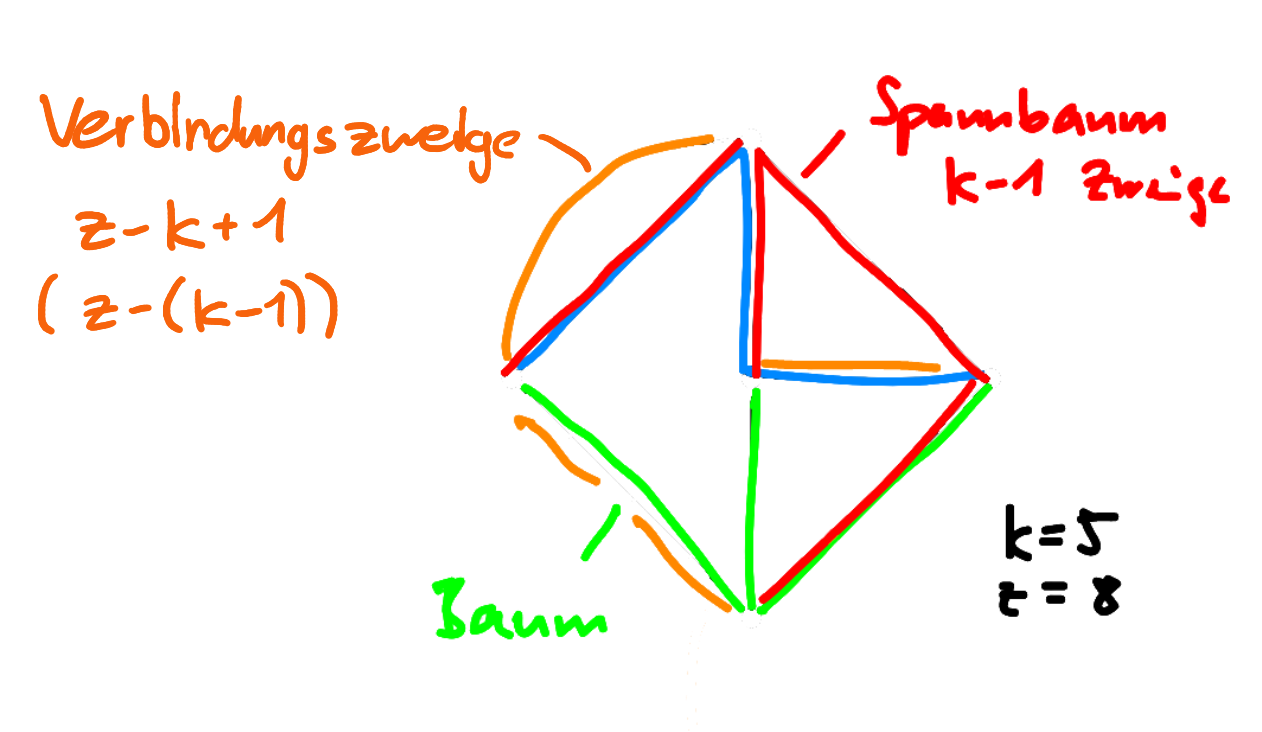 Verbindungszweige
z-k+1
(z-(k-1))
Spannbaum
k-1 Zweige
Baum
k=5
z=8